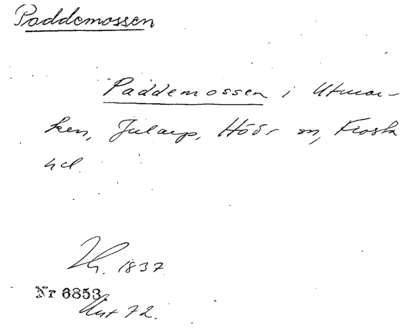 Paddemossen
Paddemossen i Utmar-
ken, Jularp, Höör sn, Frosta
hd.
1837
Nr 6853
Akt 72.